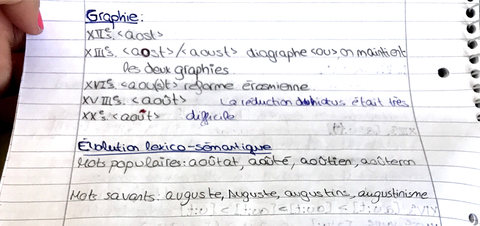 Graphie:
XIIes. <aost>
XIIIes. <aost>/<aoust> diagraphe <ou>, on maintient
les deux graphies
XVIes. <aou(s)t> réforme érasmienne
XVIIIes. <août> La réduction du hiatus était très
XXes. <août> difficile
Évolution lexico-sémantique
Mots populaires: aoûtat, aoûté, aoûtien, aoûteron
Mots savants: auguste, Auguste, augustins, augustinisme